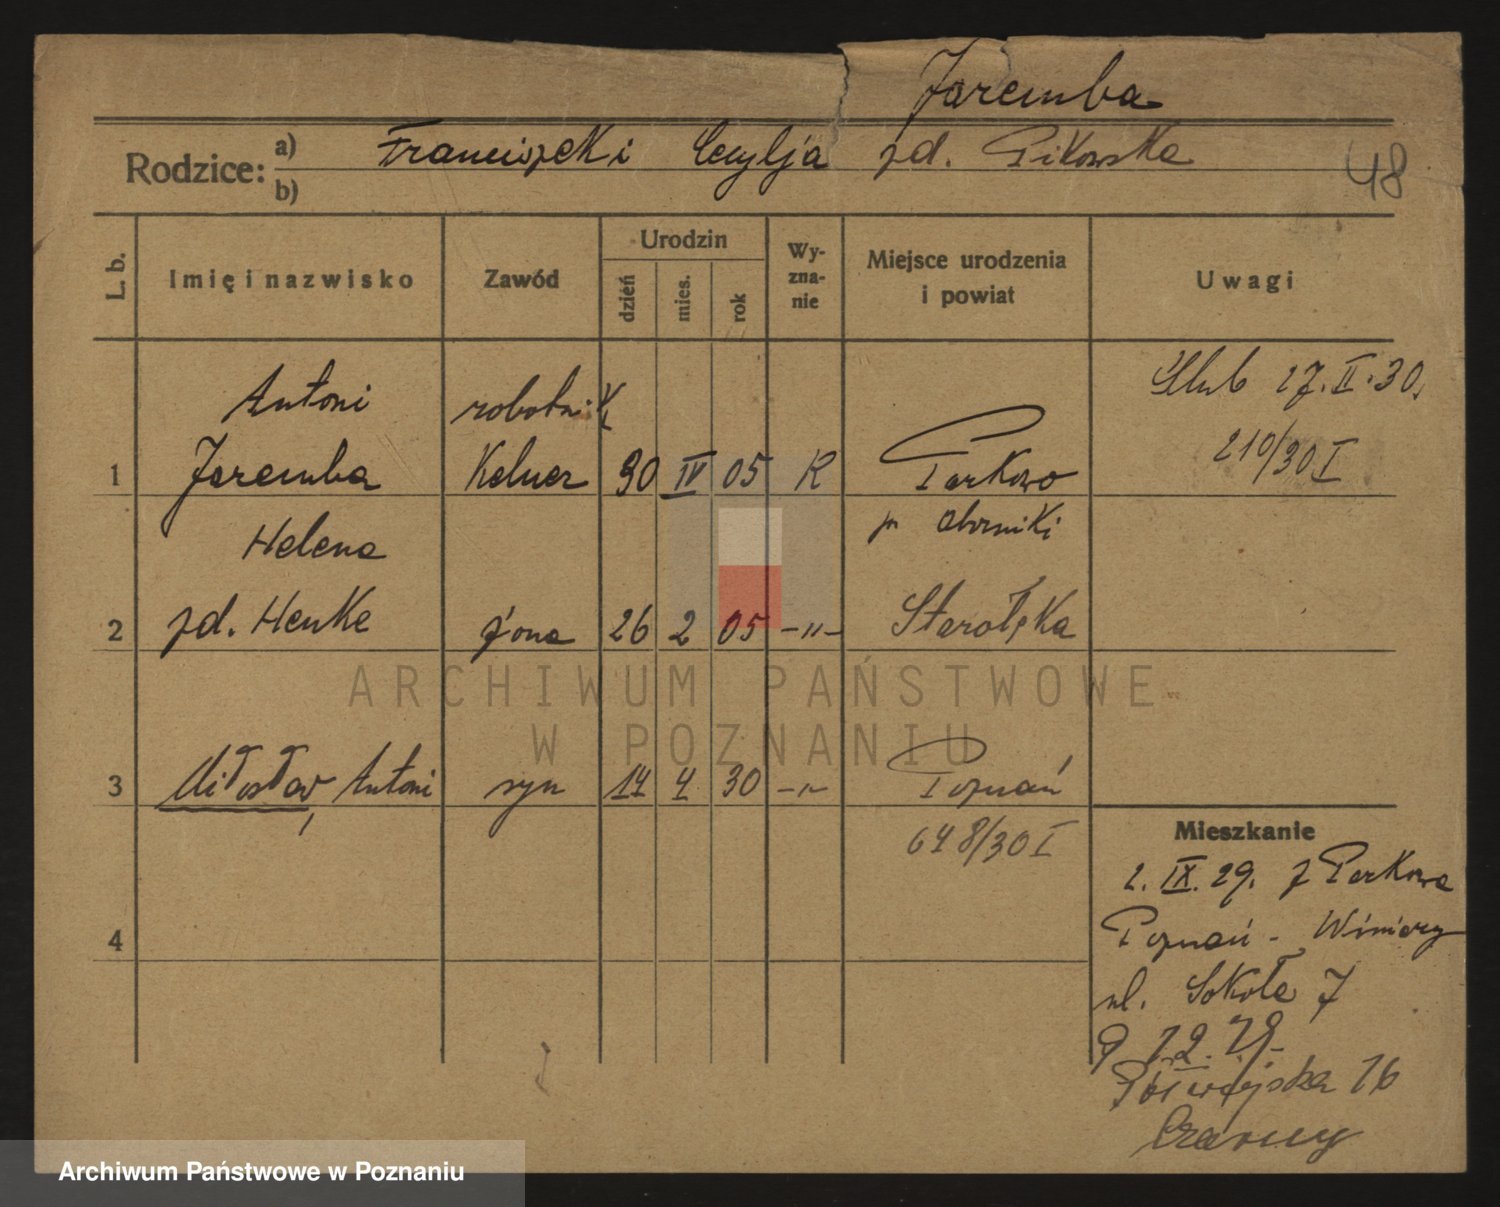 Jaremba
Rodzice: a) Franciszek i Cecylja zd. Pikowska
b)
48
L. b.
Imię i nazwisko
Zawód
Urodzin
dzień
mies.
rok
Wy-
zna-
nie
Miejsce urodzenia
i powiat
Uwagi
Antoni robotnik Ślub 17. II. 30.
1 Jaremba Kelner 30 IV 05 R Parkowo 210/30 I
Helena p. Oborniki
2 zd. Henke żona 26 2 05 -"- Starołęka
3 Miłosław, Antoni syn 14 4 30 -"- Poznań
648/30 I
4
Mieszkanie
2. IX. 29. z Parkowa
Poznań - Winiary
ul. Sokoła 7
9 12. 29
Półwiejska 16
Czarny
ARCHIWUM PAŃSTWOWE
W POZNANIU
Archiwum Państwowe w Poznaniu